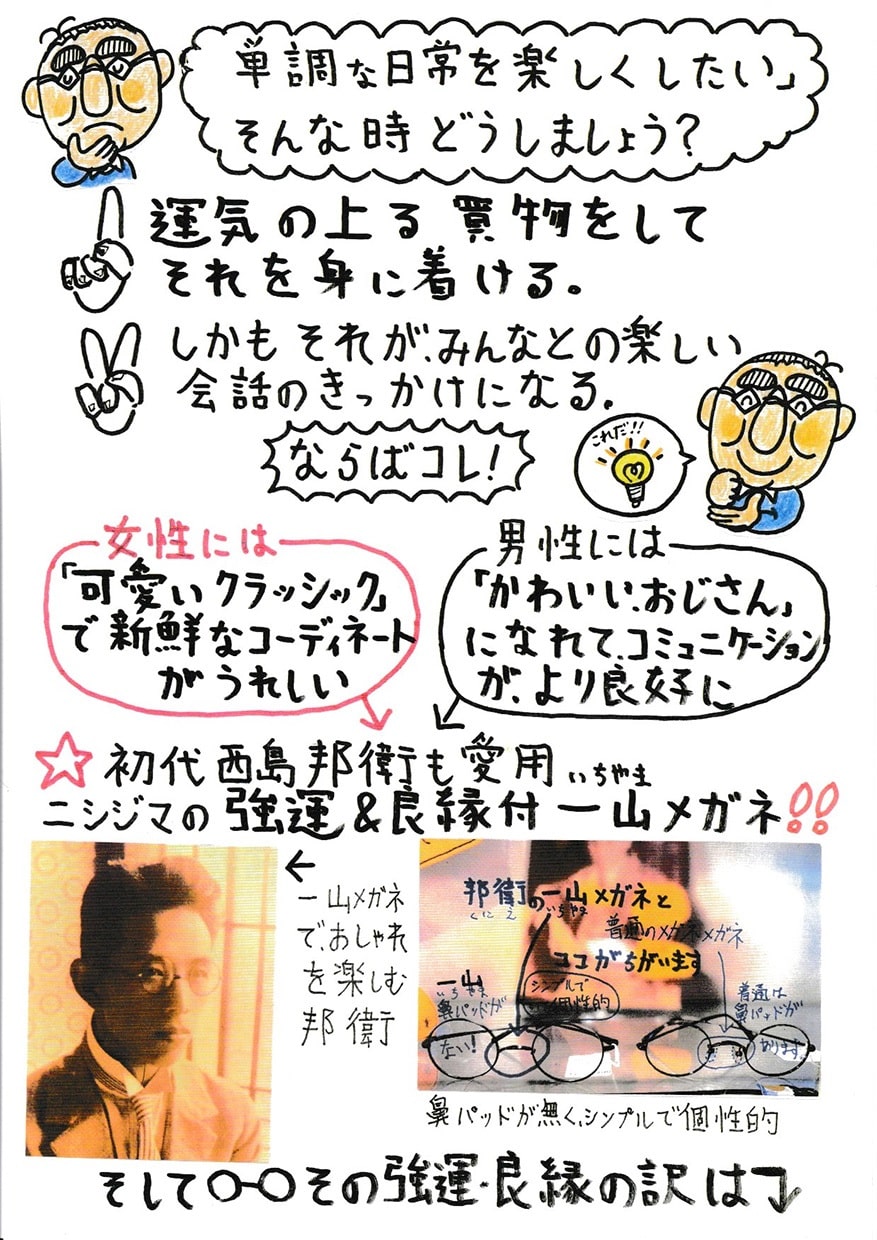 「単調な日常を楽しくしたい」
そんな時どうしましょう?
運気の上る買物をして
それを身に着ける。
しかもそれが、みんなとの楽しい
会話のきっかけになる。
ならばコレ!
これだ!!
女性には
「可愛いクラッシック」
で新鮮なコーディネート
がうれしい
男性には
「かわいい、おじさん」
になれて、コミュニケーション
が、より良好に
☆初代西島邦衛も愛用
いちやま
ニシジマの強運&良縁付一山メガネ!!
←
一山メガネ
で、おしゃれ
を楽しむ
邦衛
邦衛の一山メガネと
くにえ いちやま
普通のメガネメガネ
ココがちがいます
一山
いちやま
鼻パッドが
ない!
シンプルで
個性的
普通は
鼻パッドが
あります
鼻パッドが無く、シンプルで個性的
そして○-○その強運・良縁の訳は